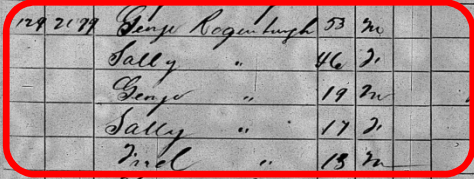 129 2179 George Rogenburgh 53 M
Sally " 46 F
George " 19 M
Sally " 17 F
" 13 M